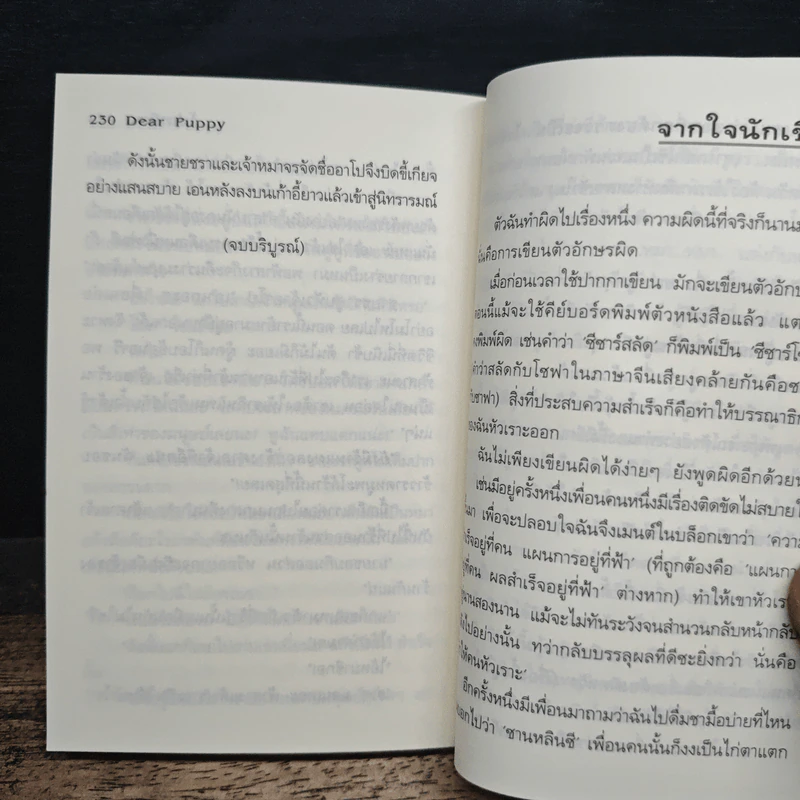 230 Dear Puppy
ดังนั้นชายชราและเจ้าหมาจรจัดชื่ออาโปจึงบิดขี้เกียจ
อย่างแสนสบาย เอนหลังลงบนเก้าอี้ยาวแล้วเข้าสู่นิทรารมณ์
(จบบริบูรณ์)
จากใจนักเขี
ตัวฉันทำผิดไปเรื่องหนึ่ง ความผิดนี้ที่จริงก็นานม
นั่นคือการเขียนตัวอักษรผิด
เมื่อก่อนเวลาใช้ปากกาเขียน มักจะเขียนตัวอักษ
ตอนนี้แม้จะใช้คีย์บอร์ดพิมพ์ตัวหนังสือแล้ว แต
พิมพ์ผิด เช่นคำว่า ‘ซีซาร์สลัด’ ก็พิมพ์เป็น ‘ซีซาร์โซ
คำว่าสลัดกับโซฟาในภาษาจีนเสียงคล้ายกันคือซ
กับซาฟา) สิ่งที่ประสบความสำเร็จก็คือทำให้บรรณาธิก
ของฉันหัวเราะออก
ฉันไม่เพียงเขียนผิดได้ง่ายๆ ยังพูดผิดอีกด้วยน
เช่นมีอยู่ครั้งหนึ่งเพื่อนคนหนึ่งมีเรื่องติดขัดไม่สบายใ
เพื่อจะปลอบใจฉันจึงเมนต์ในบล็อกเขาว่า ‘ความ
เร็จอยู่ที่คน แผนการอยู่ที่ฟ้า’ (ที่ถูกต้องคือ ‘แผนกา
ที่คน ผลสำเร็จอยู่ที่ฟ้า’ ต่างหาก) ทำให้เขาหัวเรา
นานสองนาน แม้จะไม่ทันระวังจนสำนวนกลับหน้ากลับ
ไปอย่างนั้น ทว่ากลับบรรลุผลที่ดีซะยิ่งกว่า นั่นคือ
ให้คนหัวเราะ’
อีกครั้งหนึ่งมีเพื่อนมาถามว่าฉันไปดื่มชามื้อบ่ายที่ไหน
ตอบออกไปว่า ‘ซานหลินซี’ เพื่อนคนนั้นก็งงเป็นไก่ตาแตก